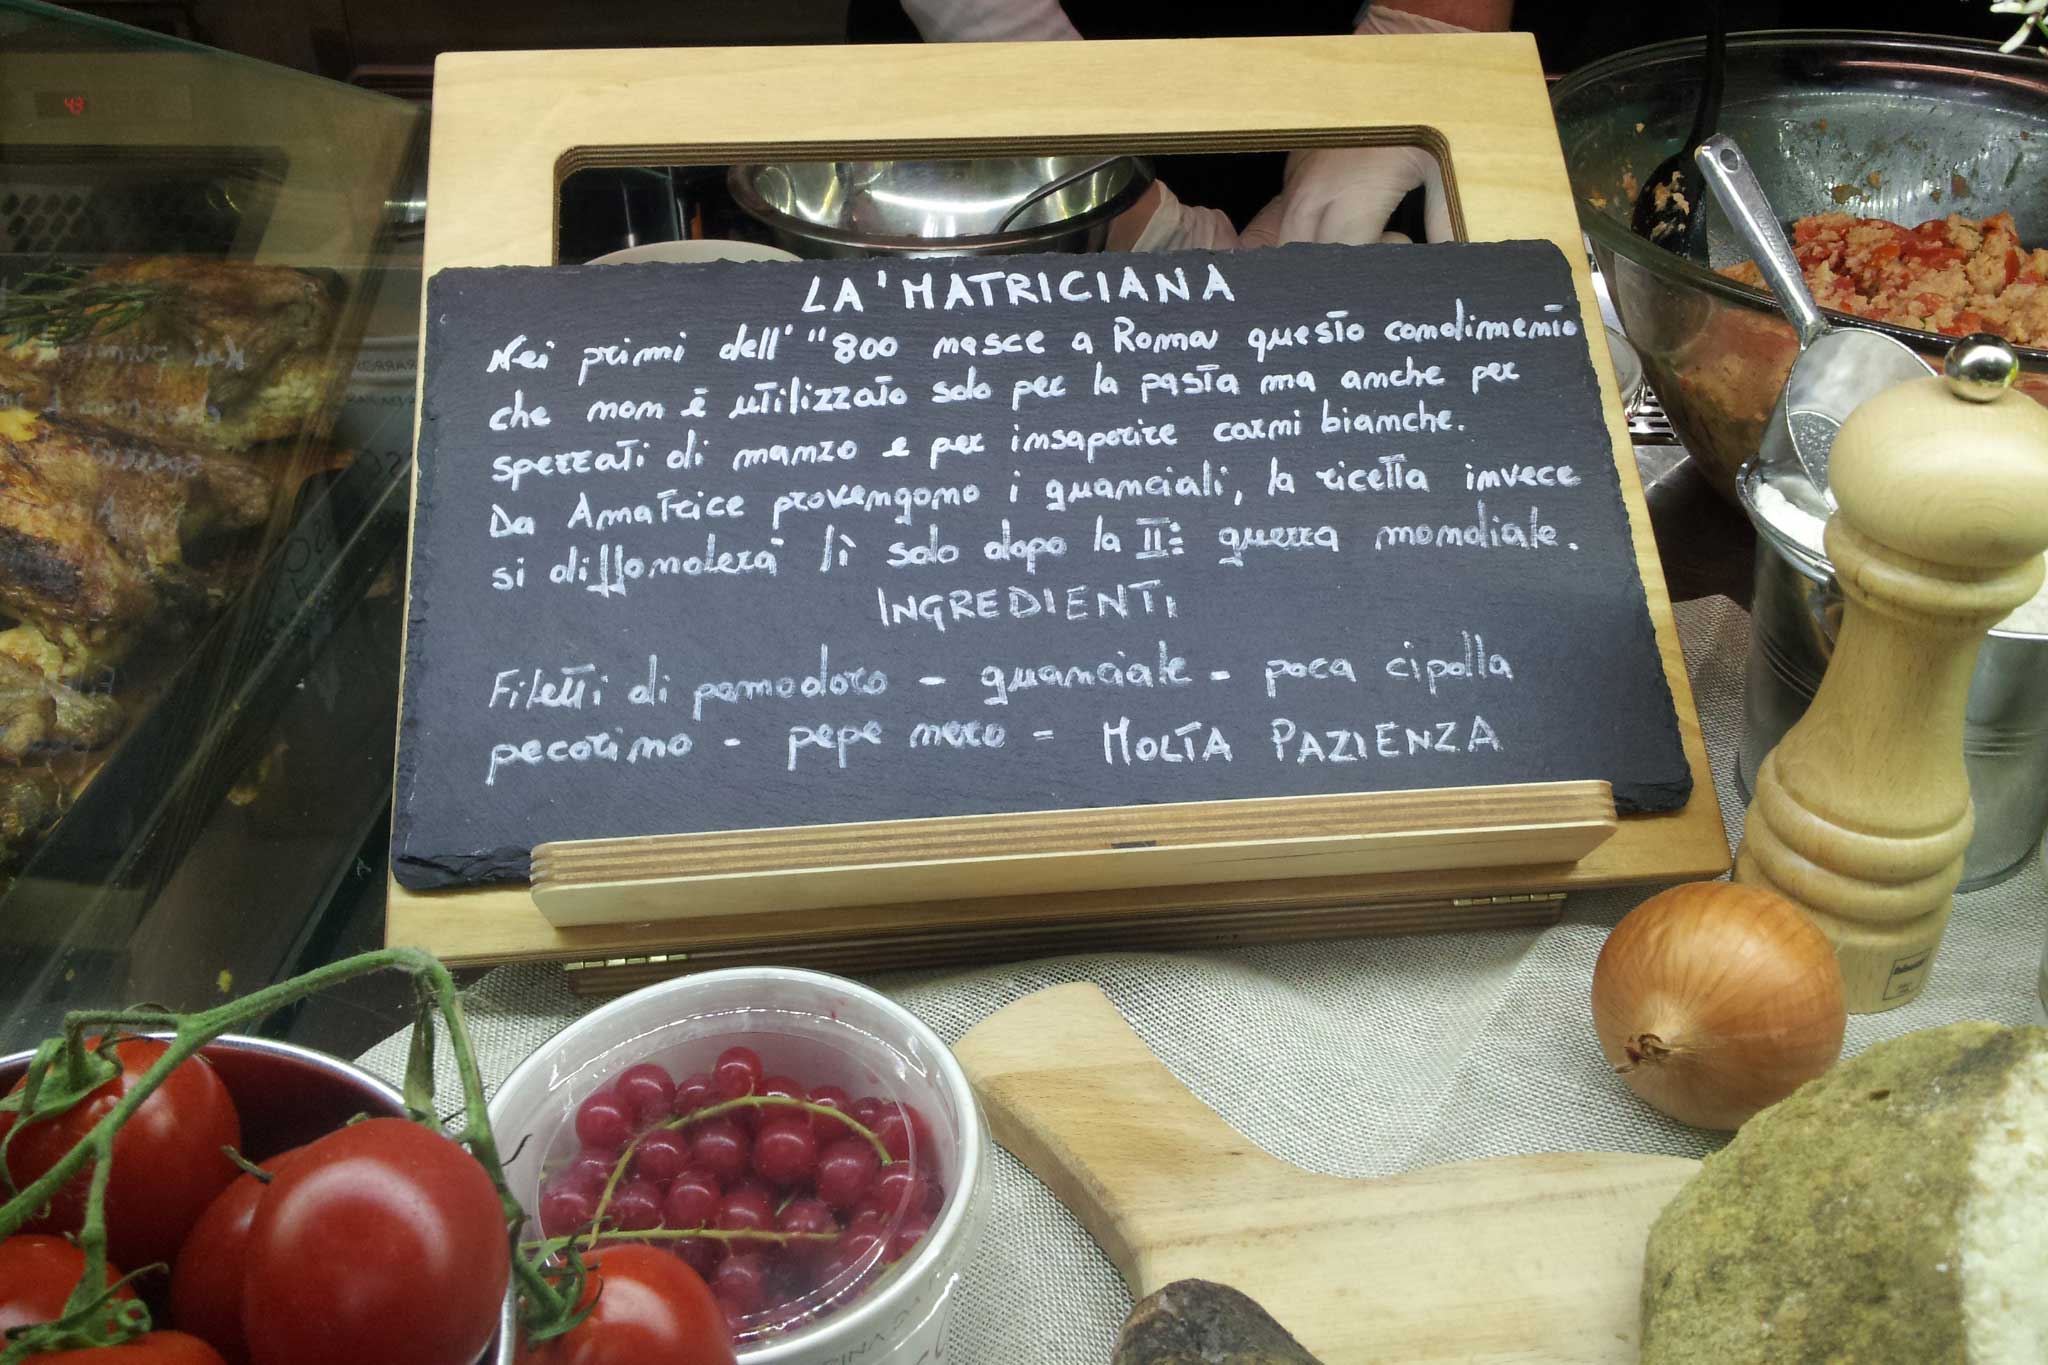 LA 'MATRICIANA
Nei primi dell' "800 nasce a Roma questo condimento
che non è utilizzato solo per la pasta ma anche per
sperzati di manzo e per insaporire carni bianche.
Da Amatrice provengono i guanciali, la ricetta invece
si diffonderà lì solo dopo la II: guerra mondiale.
INGREDIENTI
Filetti di pomodoro - guanciale - poca cipolla
pecorino - pepe nero - MOLTA PAZIENZA
43